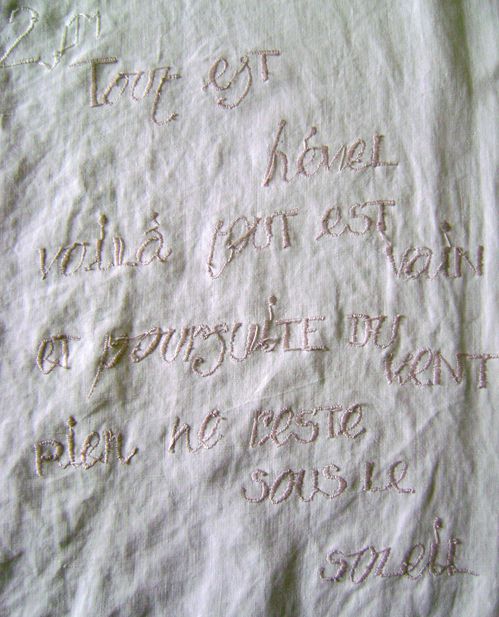 Tout est
hével
voilà tout est
vain
et poursuite du
vent
rien ne reste
sous le
soleil